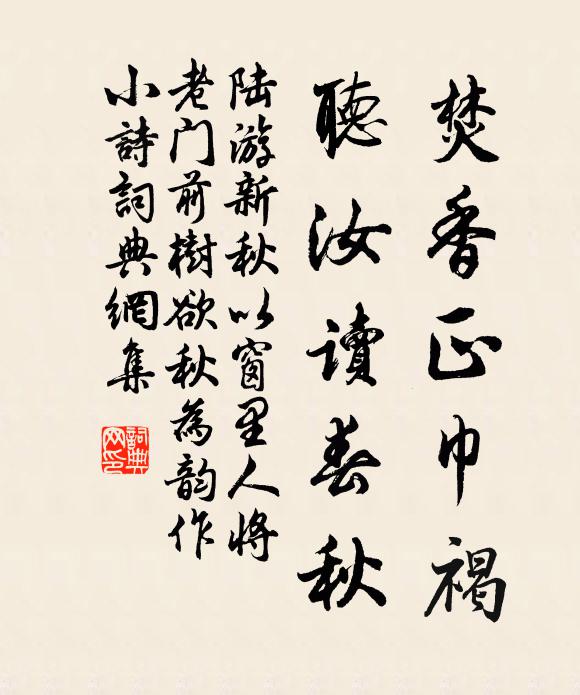 焚香正巾褐
聽汝讀春秋
陆游新秋以窗里人将
老门前樹欲秋為韵作
小詩詞典網集
詞典
网印